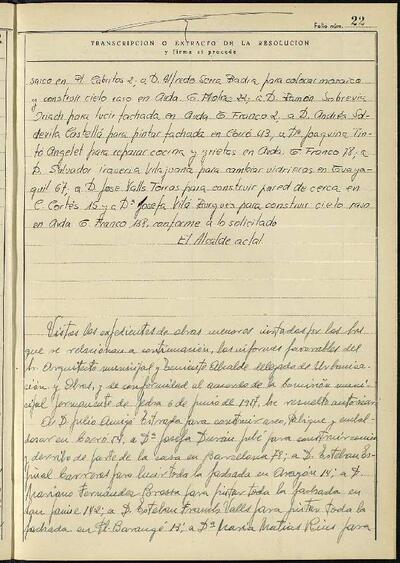 Folio núm. 22
TRANSCRIPCION O EXTRACTO DE LA RESOLUCION
y firma si procede
saico en Pl. Cabitos 2; a D. Alfredo Serra Badia para colocar mosaico
y construir cielo raso en Avda. G. Mola 24; a D. Ramón Sobrevia
para lucir fachada en Avda. G. Franco 2, a D. Andrés Sol-
devila Castellá para pintar fachada en Coiró 43, a Dª Joaquina Tin-
tó Angelet para reparar cocina y grietas en Avda. G. Franco 78; a
D. Salvador Traveria Vilajuana para cambiar vidrieras en Guaya-
quil 67; a D. Jose Valls Torras para construir pared de cerca en
C. Cortés 15 y a Dª Josefa Vilá para construir cielo raso
en Avda G. Franco 158, conforme a lo solicitado
El Alcalde actal.
Vistos los expedientes de obras menores instados por los
que se relacionan a continuación, los informes favorables del
Sr. Arquitecto municipal y Teniente Alcalde delegado de Urbaniza-
ción y Obras, y de conformidad al acuerdo de la Comisión muni-
cipal permanente de fecha 6 de junio de 1957, he resuelto autorizar:
A D. Julio para construir y
en 54, a Dª Josefa Durán para construir
y derribo de parte de la casa en Barcelona 78; a D. Esteban Es-
pinal Carreras para lucir toda la fachada en Aragón 14; a D.
Mariano Fernández para pintar toda la fachada en
San Jaime 142; a D. Esteban Valls para pintar toda la
fachada en Pl. Barangé 13; a Dª Maria Matias Rius para